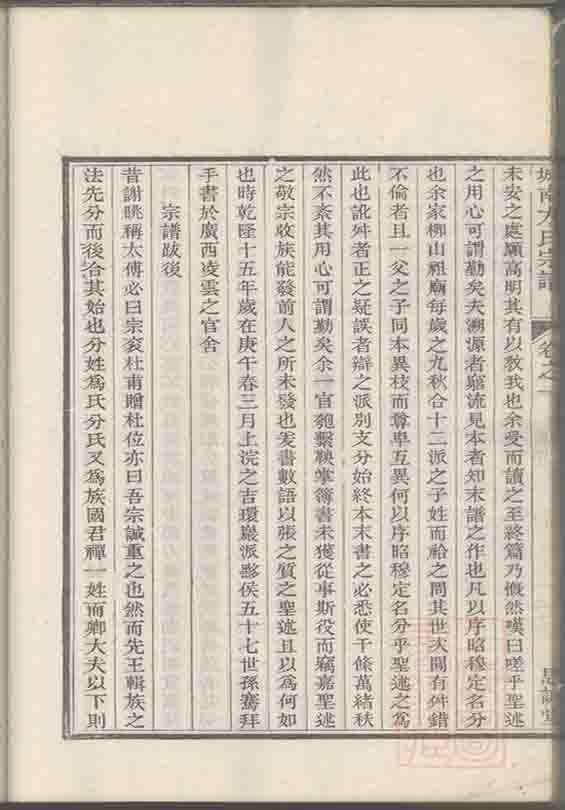 城南方氏宗譜 卷之一
未安之處願高明其有以教我也余受而讀之至終篇乃慨然嘆曰嗟乎聖述
之用心可謂勤矣夫溯源者窮流見本者知末譜之作也凡以序昭穆定名分
也余家柳山祖廟每歲之九秋合十二派之子姓而祫之問其世次間有舛錯
不倫者且一父之子同本異枝而尊卑互異何以序昭穆定名分乎聖述之爲
此也訛舛者正之疑誤者辯之派別支分始終本末書之必悉使千條萬緒秩
然不紊其用心可謂勤矣余一官匏繫鞅掌簿書未獲從事斯役而竊嘉聖述
之敬宗收族能發前人之所未發也爰書數語以張之質之聖述且以爲何如
也時乾隆十五年歲在庚午春三月上浣之吉環巖派黟侯五十七世孫騫拜
手書於廣西凌雲之官舍
宗譜跋後
昔謝眺稱太傅必曰宗袞杜甫贈杜位亦曰吾宗誠重之也然而先王輯族之
法先分而後合其始也分姓爲氏分氏又爲族國君禪一姓而卿大夫以下則